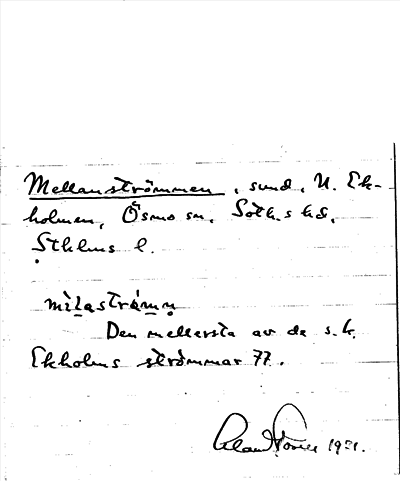 Mellanströmmen, sund, N. Ek-
holmen, Ösmo sn, Soth.s hd,
Sthlms l.
milaströmn
Den mellersta av de s.k.
Ekholms strömmar 77.
1931.